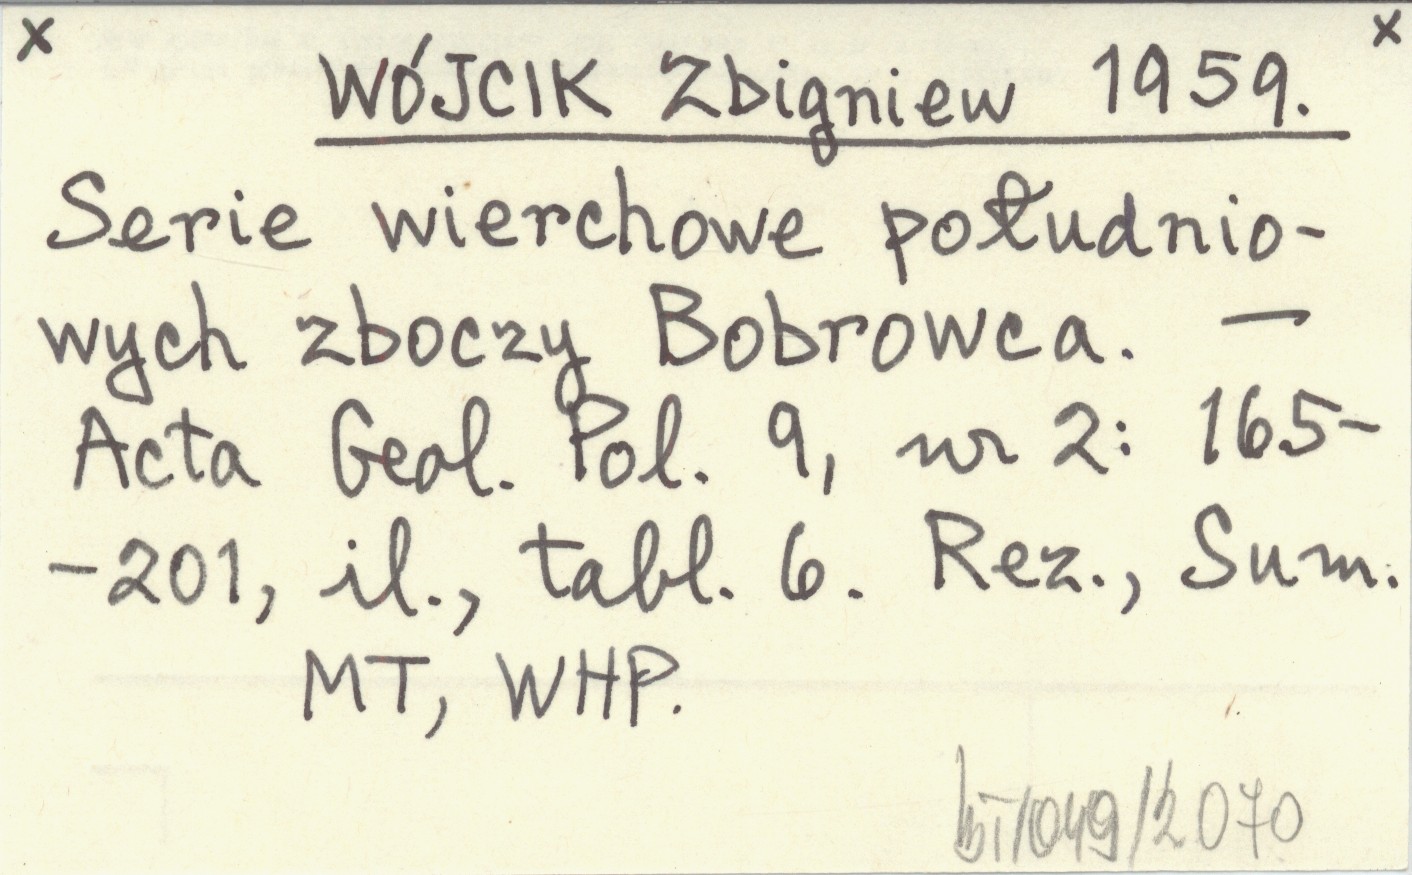 x x
WÓJCIK Zbigniew 1959.
Serie wierchowe południo-
wych zboczy Bobrowca. —
Acta Geol. Pol. 9, nr 2: 165-
-201, il., tabl. 6. Rez., Sum.
MT, WHP.
/2070